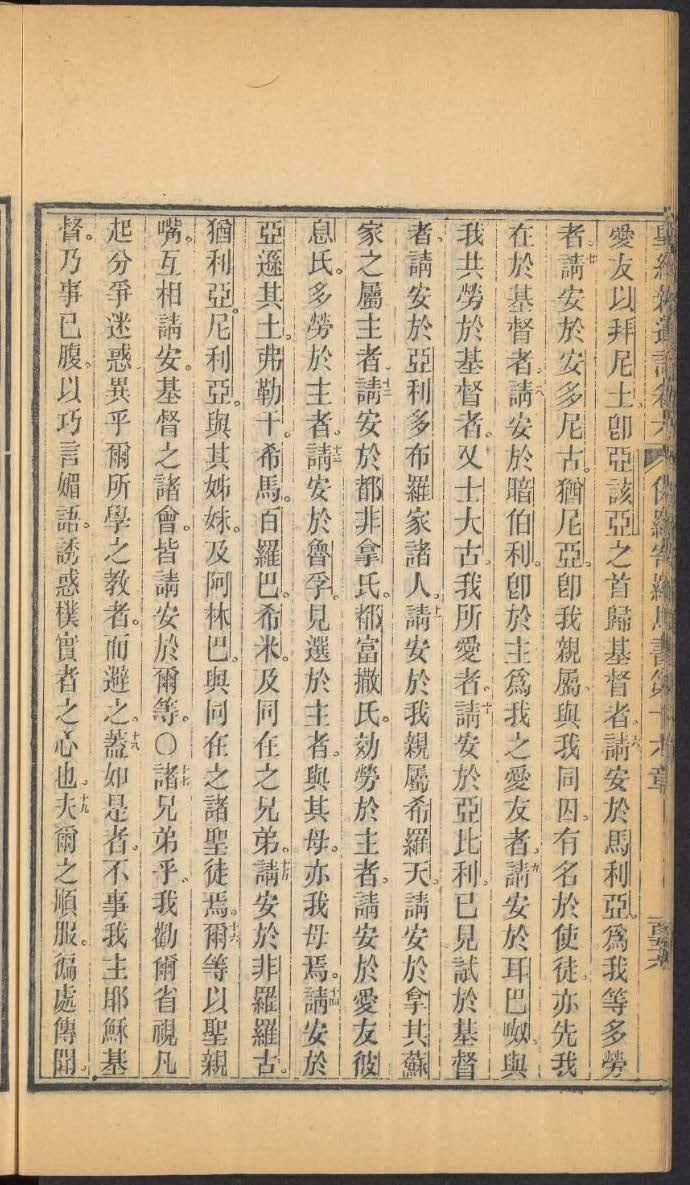 保羅寄羅馬書第十六章
愛友以拜尼土卽亞該亞之首歸基督者。六請安於馬利亞爲我等多勞
者。七請安於安多尼古。猶尼亞。卽我親屬。與我同囚。有名於使徒。亦先我
在於基督者。八請安於暗伯利。卽於主爲我之愛友者。九請安於耳巴奴。與
我共勞於基督者。又士大古。我所愛者。十請安於亞比利。已見試於基督
者。請安於亞利多布羅家諸人。十一請安於我親屬希羅天。請安於拿其蘇
家之屬主者。十二請安於都非拿氏。都富撒氏。効勞於主者。請安於愛友彼
息氏。多勞於主者。十三請安於魯孚。見選於主者。與其母。亦我母焉。十四請安於
亞遜其土。弗勒干。希馬。百羅巴。希米。及同在之兄弟。十五請安於非羅羅古。
猶利亞。尼利亞。與其姊妹。及阿林巴。與同在之諸聖徒焉。十六爾等以聖親
嘴。互相請安。基督之諸會。皆請安於爾等。〇十七諸兄弟乎。我勸爾省視凡
起分爭迷惑異乎爾所學之教者。而避之。十八蓋如是者。不事我主耶穌基
督。乃事已腹。以巧言媚語。誘惑樸實者之心也。十九夫爾之順服。徧處傳聞。